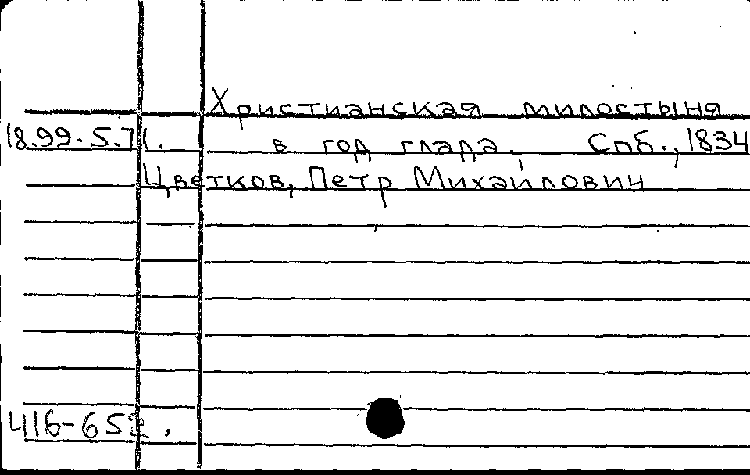 Христианская милостыня
18.99.5.71. в год глада. Спб., 1834
Цветков, Петр Михайлович
416-652.